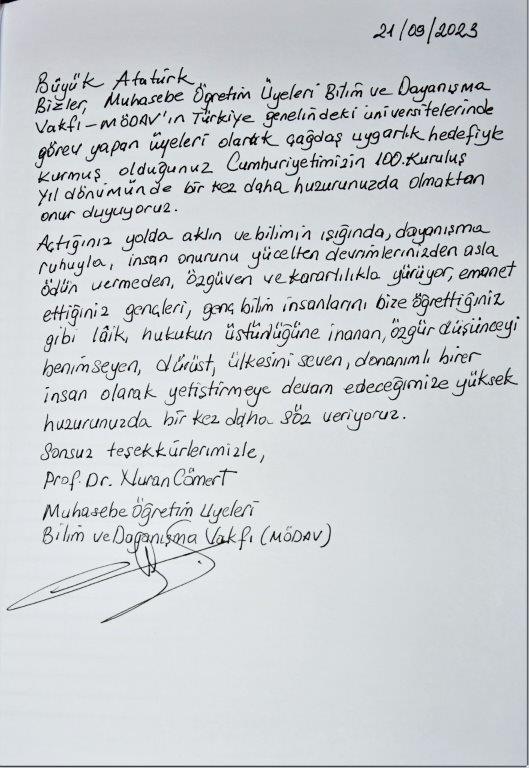 21/09/2023
Büyük Atatürk
Bizler, Muhasebe Öğretim Üyeleri Bilim ve Dayanışma
Vakfı-MÖDAV'ın Türkiye genelindeki üniversitelerinde
görev yapan üyeleri olarak çağdaş uygarlık hedefiyle
kurmuş olduğunuz Cumhuriyetimizin 100. Kuruluş
Yıl dönümünde bir kez daha huzurunuzda olmaktan
onur duyuyoruz.
Açtığınız yolda aklın ve bilimin ışığında, dayanışma
ruhuyla, insan onurunu yücelten devrimlerinizden asla
ödün vermeden, özgüven ve kararlılıkla yürüyor, emanet
ettiğiniz gençleri, genç bilim insanlarını bize öğrettiğiniz
gibi lâik, hukukun üstünlüğüne inanan, özgür düşünceyi
benimseyen, dürüst, ülkesini seven, donanımlı birer
insan olarak yetiştirmeye devam edeceğimize yüksek
huzurunuzda bir kez daha söz veriyoruz.
Sonsuz teşekkürlerimizle,
Prof. Dr. Nuran Cömert
Muhasebe Öğretim Üyeleri
Bilim ve Dayanışma Vakfı (MÖDAV)